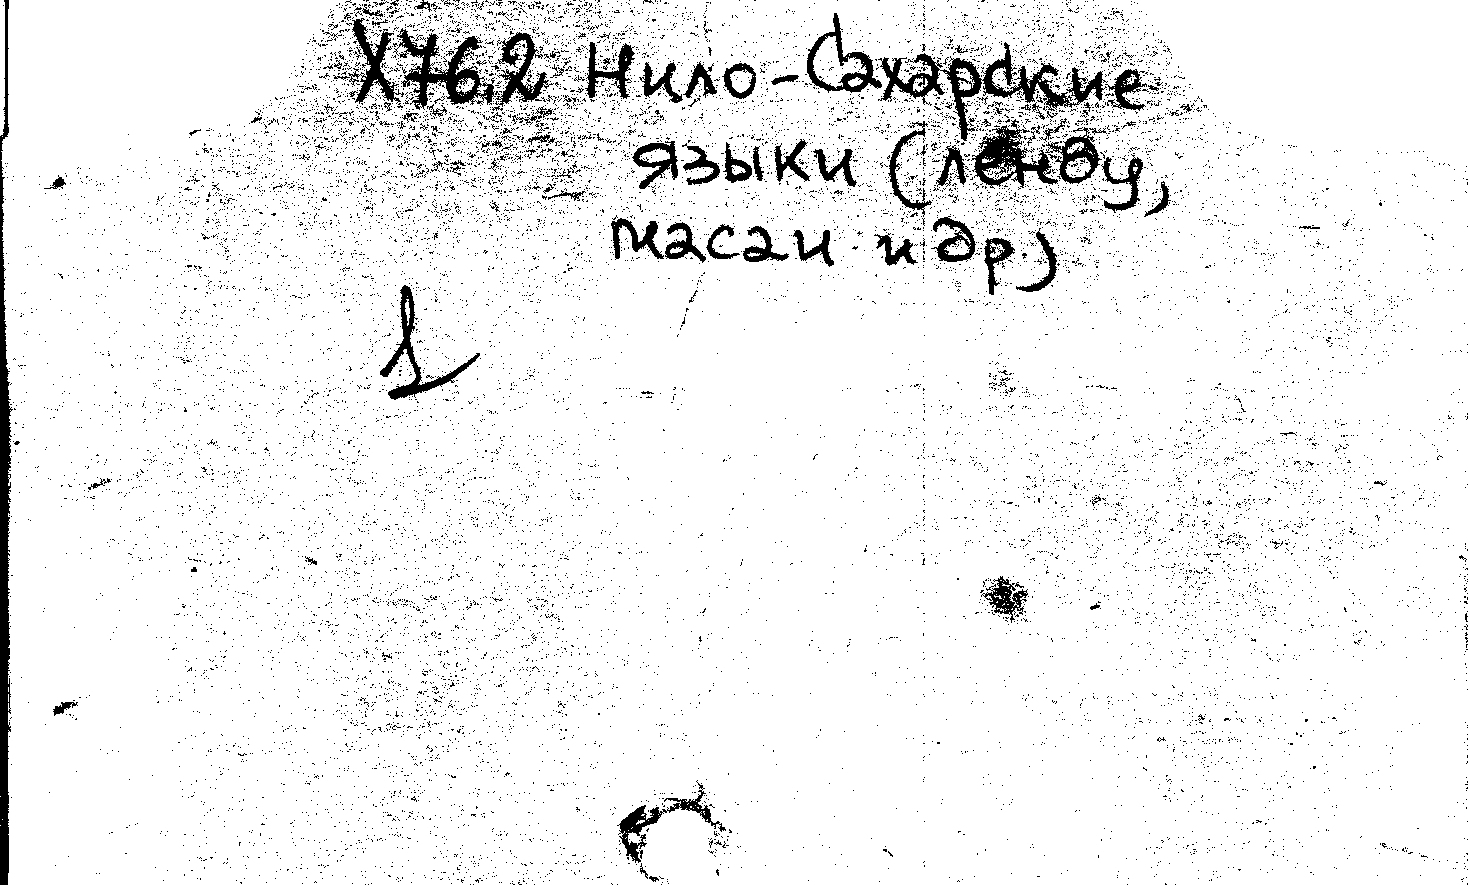 Х76,2 Нило-Сахарские
языки (ленду,
масаи и др.)
1